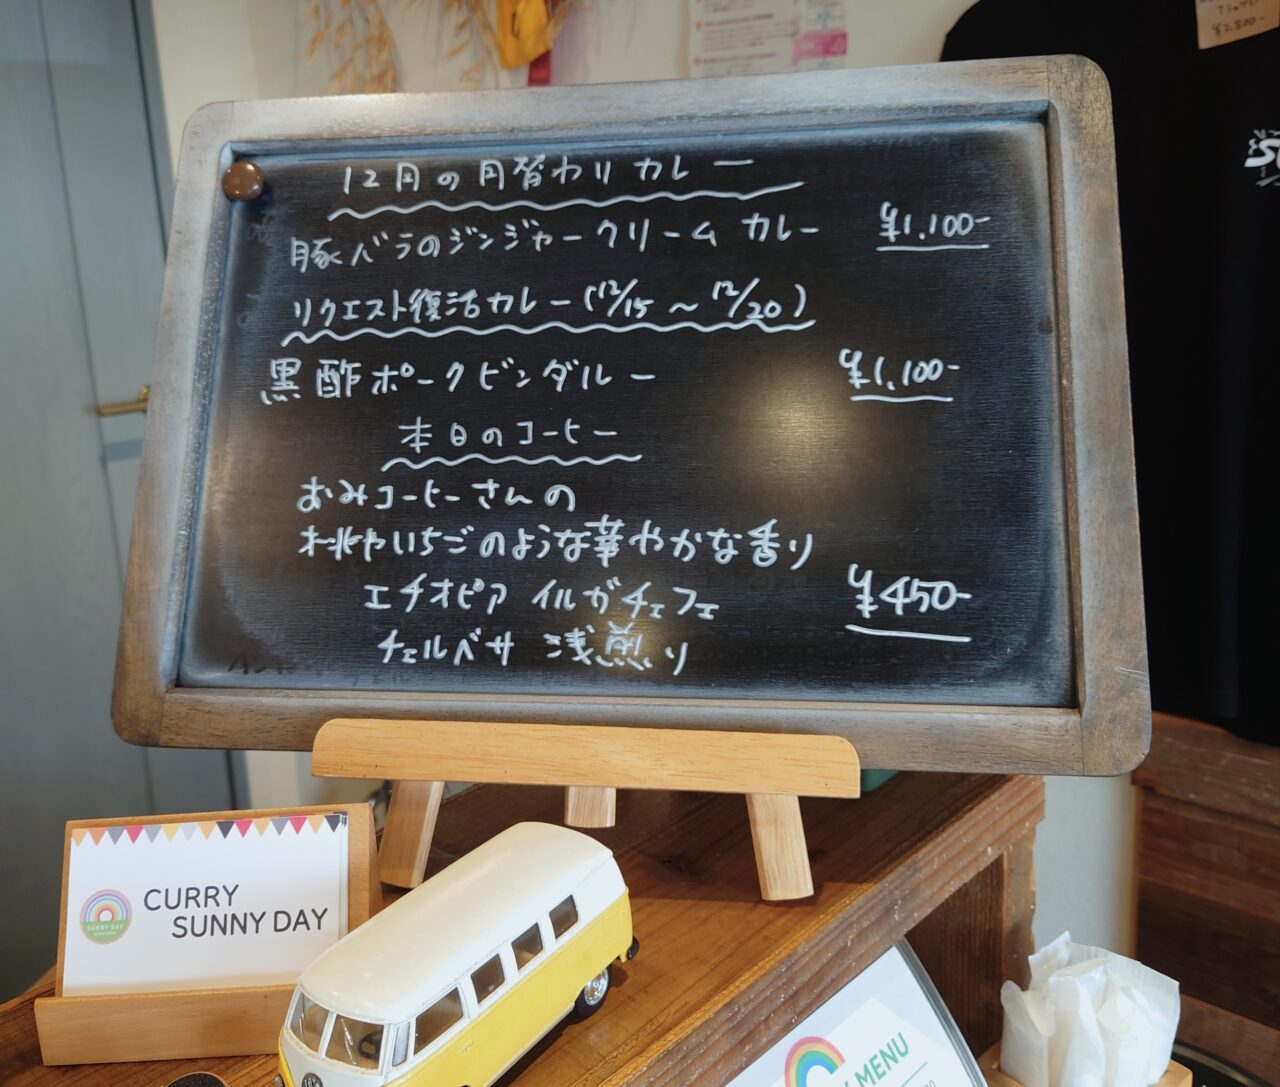 12月の月替わりカレー
豚バラのジンジャークリームカレー ¥1,100-
リクエスト復活カレー(12/15～12/20)
黒酢ポークビンダルー ¥1,100-
本日のコーヒー
おみコーヒーさんの
桃やいちごのような華やかな香り
エチオピア イルガチェフェ ¥450-
チェルベサ 浅煎り
CURRY
SUNNY DAY
SUNNY DAY
MENU